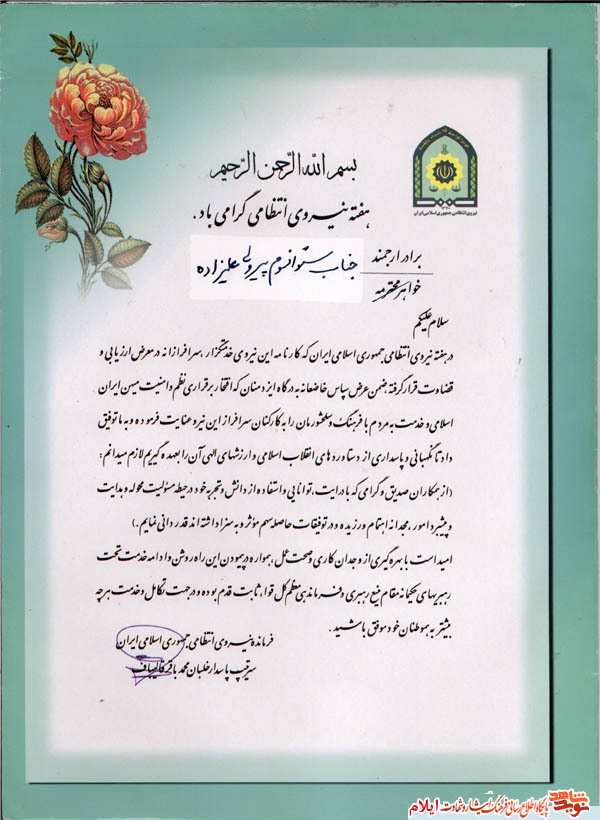 بسم الله الرحمن الرحیم
هفته نیروی انتظامی گرامی باد.
نیروی انتظامی جمهوری اسلامی ایران
برادر ارجمند
خواهر محترمه
جناب ستوانسوم پیرولی علیزاده
سلام علیکم
در هفته نیروی انتظامی جمهوری اسلامی ایران که کارنامه این نیروی خدمتگزار، سرافرازانه در معرض ارزیابی و
قضاوت قرار گرفته ضمن عرض سپاس خاضعانه به درگاه ایزد منان که افتخار برقراری نظم و امنیت میهن ایران
اسلامی و خدمت به مردم با فرهنگ و سلحشورمان را به کارکنان سرافراز این نیرو عنایت فرموده و به ما توفیق
داد تا نگهبانی و پاسداری از دستاوردهای انقلاب اسلامی و ارزشهای الهی آن را بعهده گیریم لازم میدانم:
(از همکاران صدیق و گرامی که با درایت، توانایی و استفاده از دانش و تجربه خود در حیطه مسئولیت محوله و هدایت
و پیشبرد امور، مجدانه اهتمام ورزیده و در توفیقات حاصله سهم مؤثر و به سزا داشته اند قدردانی نمایم.)
امید است با بهره گیری از وجدان کاری و صحت عمل، همواره در پیمودن این راه روشن و ادامه خدمت تحت
رهبریهای حکیمانه مقام منیع رهبری و فرماندهی معظم کل قوا، ثابت قدم بوده و در جهت تکامل و خدمت هر چه
بیشتر به هموطنان خود موفق باشید.
فرمانده نیروی انتظامی جمهوری اسلامی ایران
سرتیپ پاسدار خلبان محمد باقر قالیباف
نوید شاهد
پایگاه اطلاع رسانی فرهنگ ایثار و شهادت ایلام